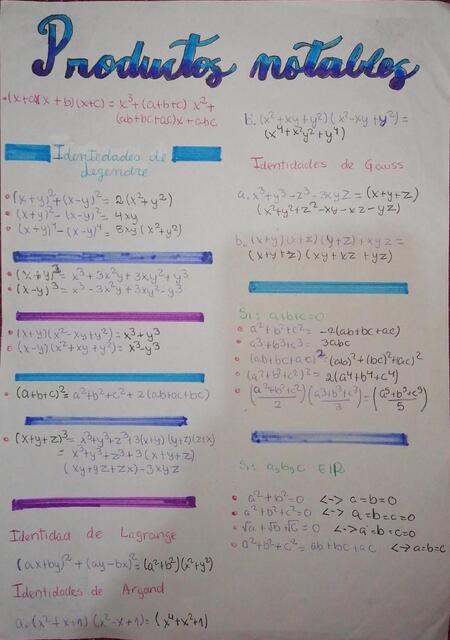 Productos notables
(x+a)(x+b)(x+c) = x³+(a+b+c) x²+
(ab+bc+ac)x+abc
Identedades de
Legendre
(x+y)²+(x-y)² = 2(x²+y²)
(x+y)²-(x-y)² = 4xy
(x+y)⁴-(x-y)⁴ = 8xy(x²+y²)
(x+y)³ = x³+3x²y+3xy²+y³
(x-y)³ = x³-3x²y+3xy²-y³
(x+y)(x²-xy+y²) = x³+y³
(x-y)(x²+xy+y²) = x³-y³
(a+b+c)² = a²+b²+c²+2(ab+ac+bc)
(x+y+z)³ = x³+y³+z³+3(x+y)(y+z)(z+x)
= x³+y³+z³+3(x+y+z)
(xy+yz+zx)-3xyz
Identidad de Lagrange
(ax+by)²+(ay-bx)² = (a²+b²)(x²+y²)
Identidades de Argand
a. (x²+x+1)(x²-x+1) = (x⁴+x²+1)
b. (x²+xy+y²)(x²-xy+y²) =
(x⁴+x²y²+y⁴)
Identidades de Gauss
a. x³+y³-z³-3xyz = (x+y+z)
(x²+y²+z²-xy-xz-yz)
b. (x+y)(x+z)(y+z)+xyz =
(x+y+z)(xy+xz+yz)
Si: a+b+c=0
a²+b²+c² = -2(ab+bc+ac)
a³+b³+c³ = 3abc
(ab+bc+ac)² = (ab)²+(bc)²+(ac)²
(a²+b²+c²)² = 2(a⁴+b⁴+c⁴)
((a²+b²+c²)/2)((a³+b³+c³)/3) = ((a⁵+b⁵+c⁵)/5)
Si: a,b y c E IR
a²+b²=0 <-> a=b=0
a²+b²+c²=0 <-> a=b=c=0
√a+√b+√c=0 <-> a=b=c=0
a²+b²+c² = ab+bc+ac <-> a=b=c